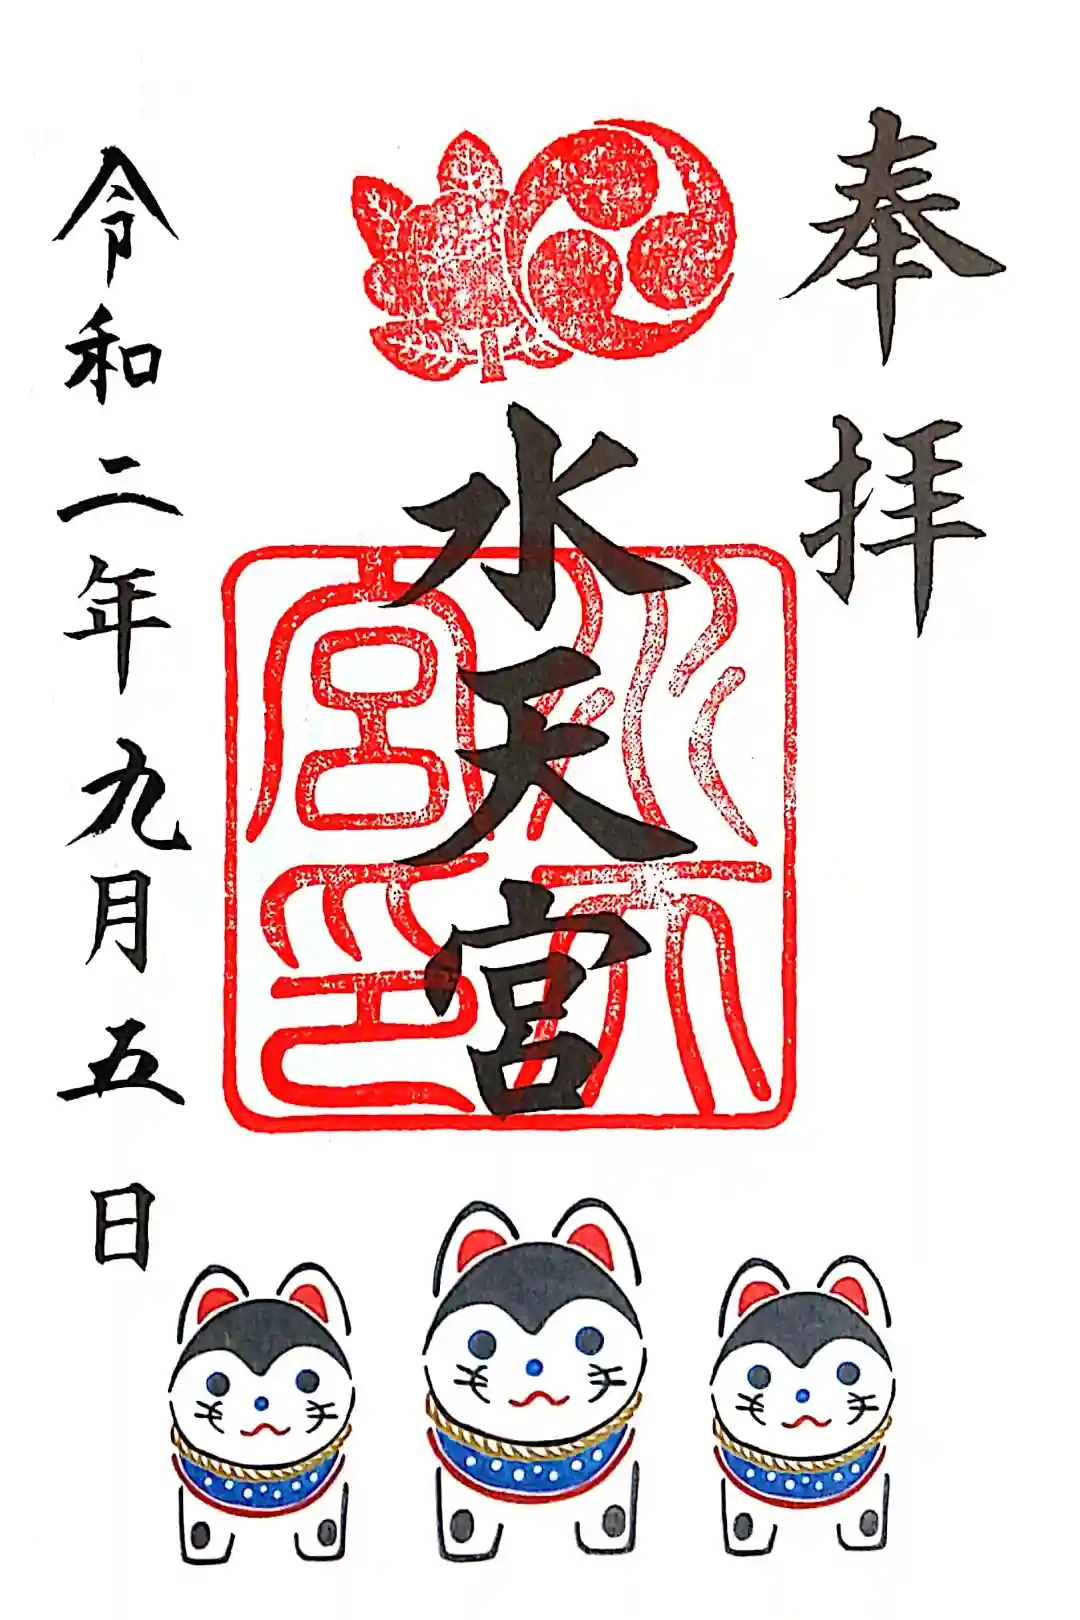 奉拝
水天宮
水天宮印
令和二年九月五日